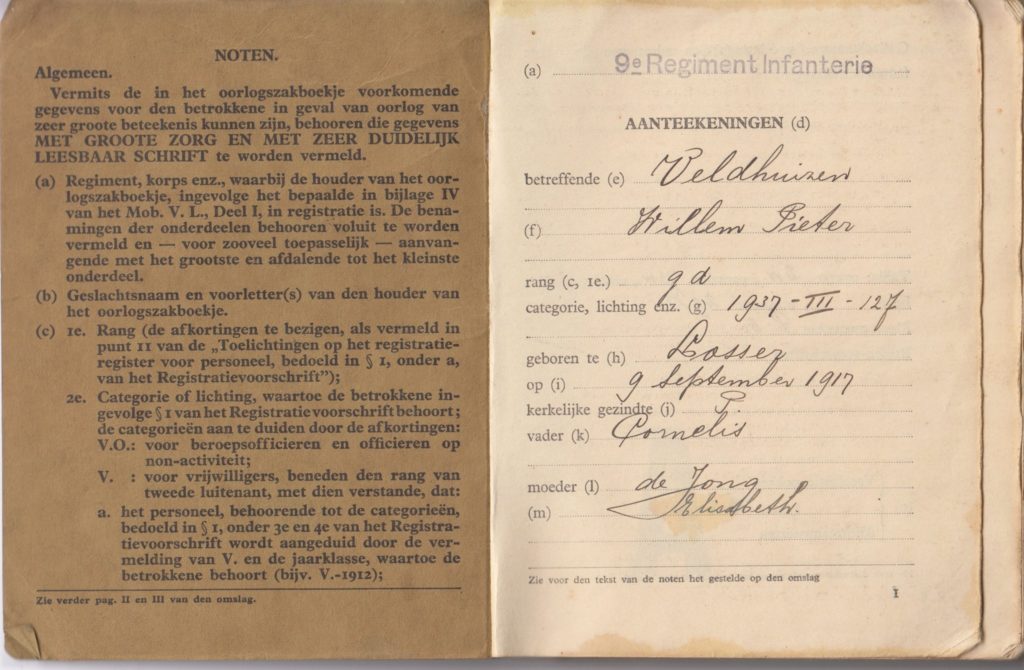 NOTEN.
Algemeen.
Vermits de in het oorlogszakboekje voorkomende
gegevens voor den betrokkene in geval van oorlog van
zeer groote beteekenis kunnen zijn, behooren die gegevens
MET GROOTE ZORG EN MET ZEER DUIDELIJK
LEESBAAR SCHRIFT te worden vermeld.
(a) Regiment, korps enz., waarbij de houder van het oor-
logszakboekje, ingevolge het bepaalde in bijlage IV
van het Mob. V. L., Deel I, in registratie is. De bena-
mingen der onderdeelen behooren voluit te worden
vermeld en — voor zooveel toepasselijk — aanvan-
gende met het grootste en afdalende tot het kleinste
onderdeel.
(b) Geslachtsnaam en voorletter(s) van den houder van
het oorlogszakboekje.
(c) 1e. Rang (de afkortingen te bezigen, als vermeld in
punt 11 van de „Toelichtingen op het registratie-
register voor personeel, bedoeld in § 1, onder a,
van het Registratievoorschrift");
2e. Categorie of lichting, waartoe de betrokkene in-
gevolge § 1 van het Registratievoorschrift behoort;
de categorieën aan te duiden door de afkortingen:
V.O.: voor beroepsofficieren en officieren op
non-activiteit;
V. : voor vrijwilligers, beneden den rang van
tweede luitenant, met dien verstande, dat:
a. het personeel, behoorende tot de categorieën,
bedoeld in § 1, onder 3e en 4e van het Registra-
tievoorschrift wordt aangeduid door de ver-
melding van V. en de jaarklasse, waartoe de
betrokkene behoort (bijv. V.-1912);
Zie verder pag. II en III van den omslag.
(a) 9e Regiment Infanterie
AANTEEKENINGEN (d)
betreffende (e) Veldhuizen
(f) Willem Pieter
rang (c, 1e.) gd
categorie, lichting enz. (g) 1937 - III - 127
geboren te (h) Losser
op (i) 9 September 1917
kerkelijke gezindte (j) P.
vader (k) Cornelis
moeder (l) de Jong
(m) Elisabeth.
Zie voor den tekst van de noten het gestelde op den omslag
1